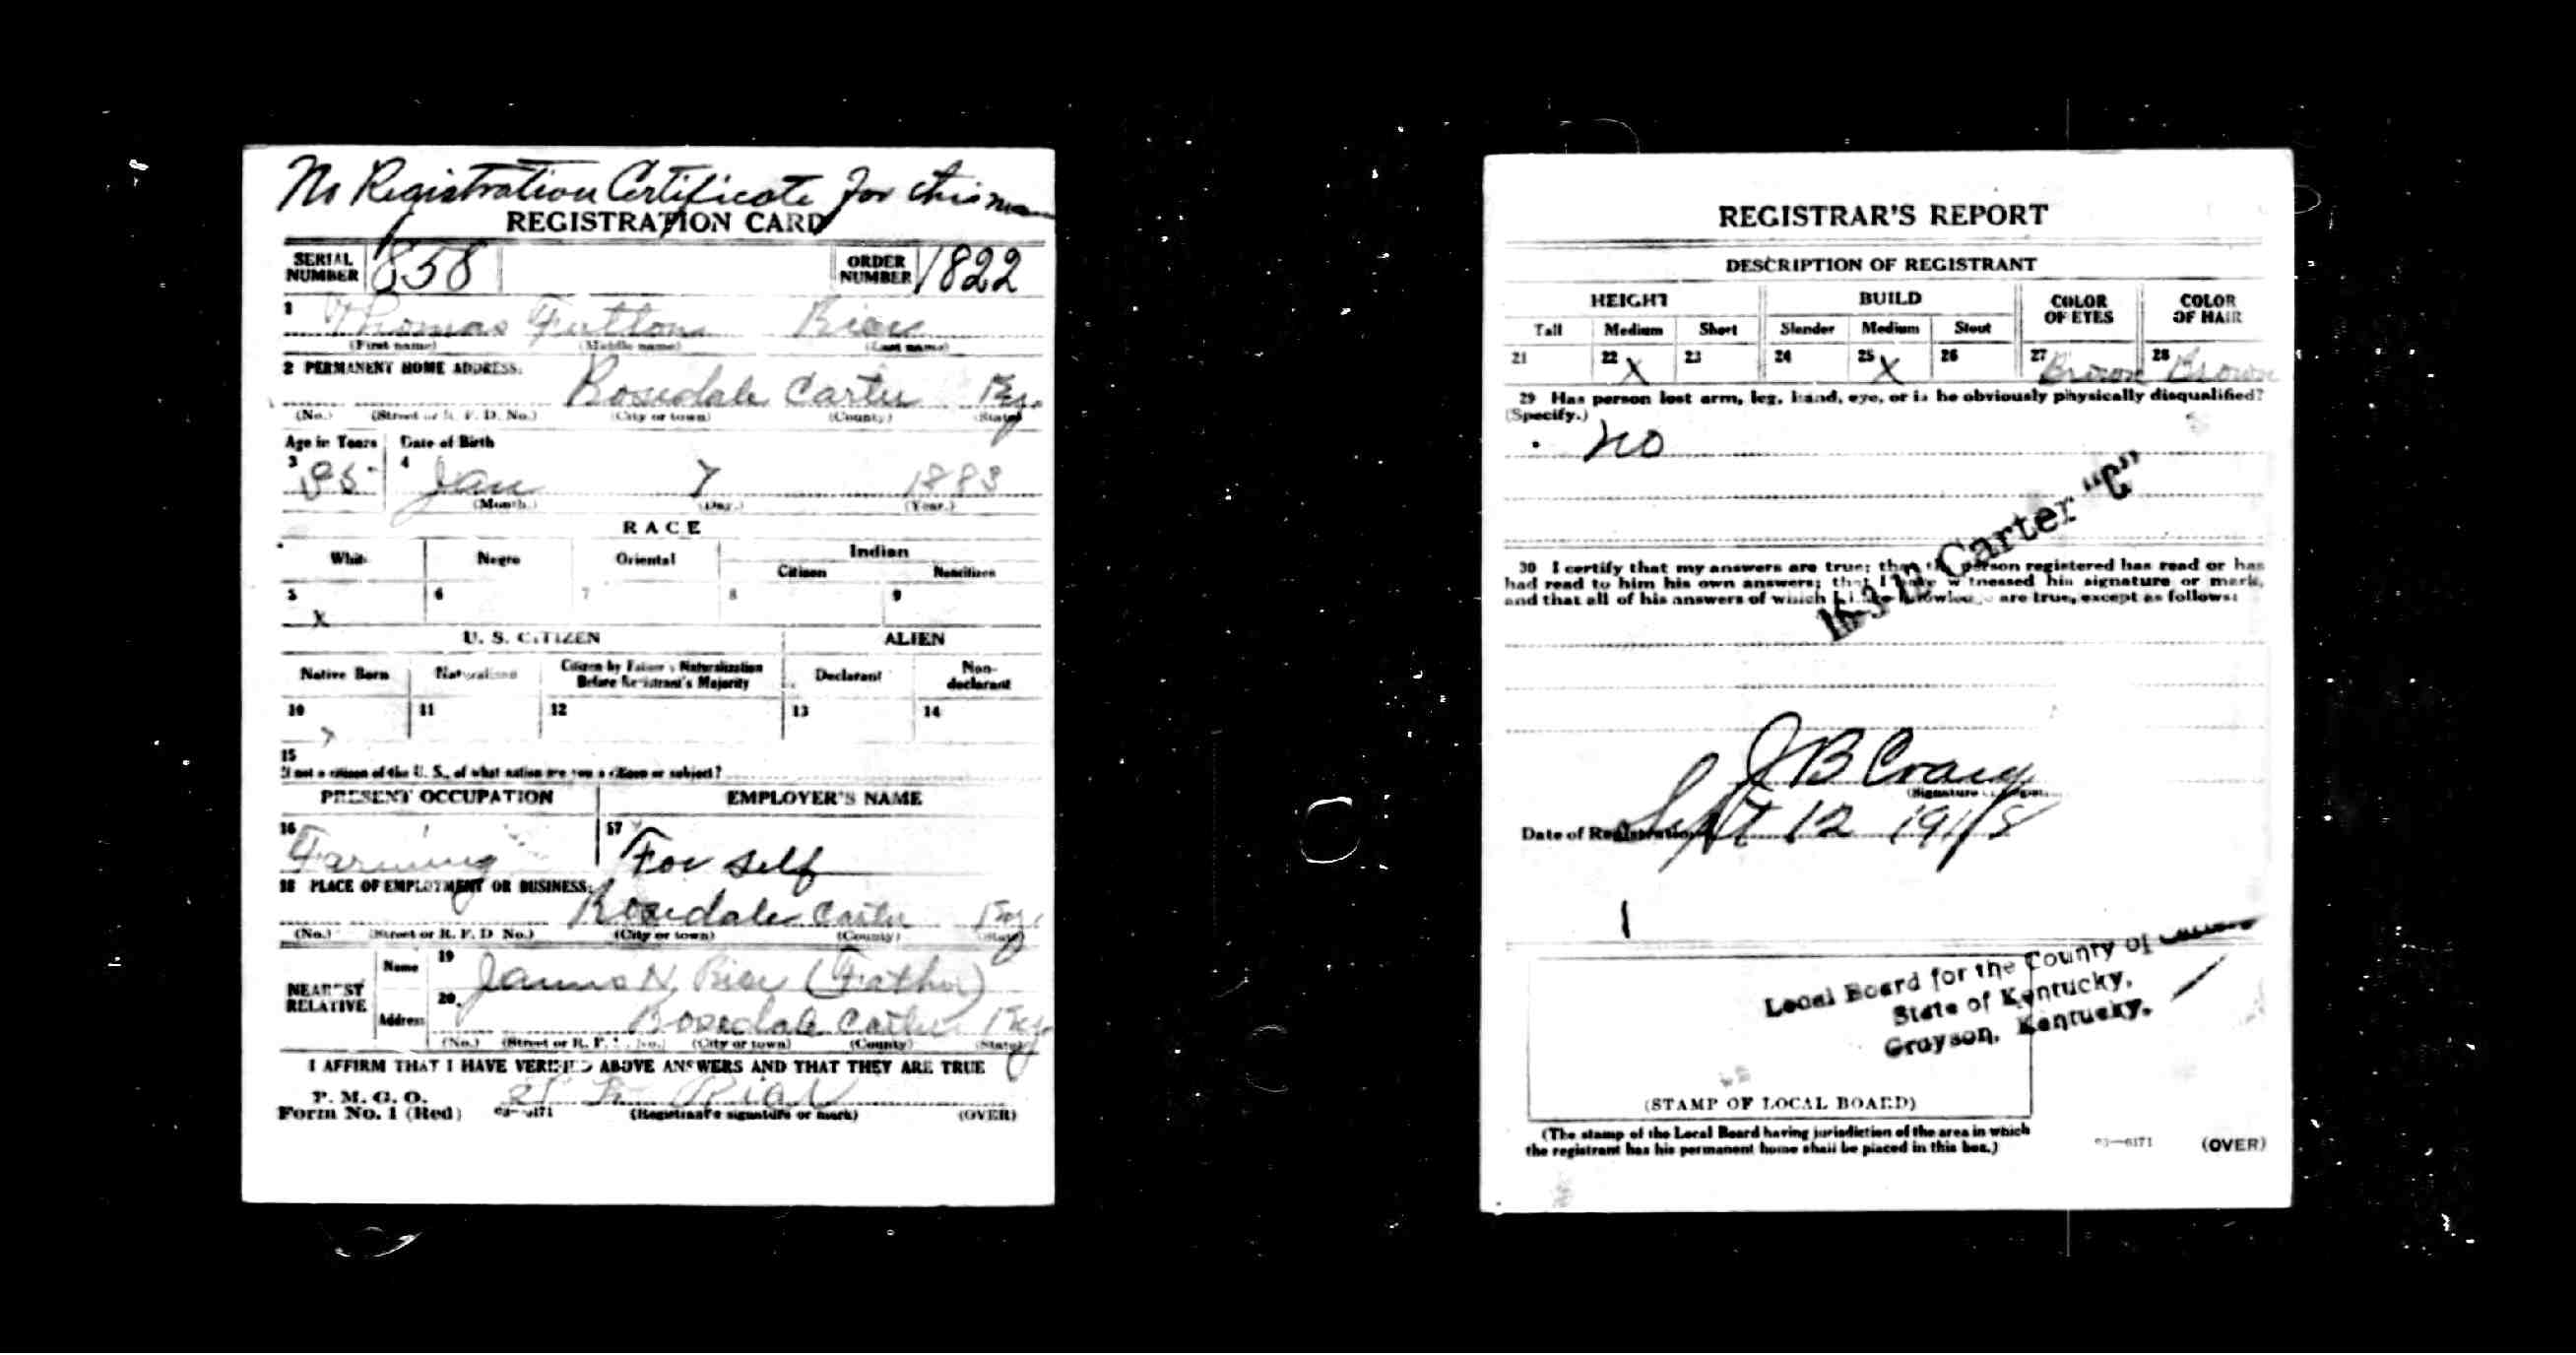 No Registration Certificate for this man
REGISTRATION CARD
SERIAL NUMBER 858 ORDER NUMBER 1822
1 Thomas Fultton
(First name) (Middle name) (Last name)
2 PERMANENT HOME ADDRESS:
Rosedale Carter Ky.
(No.) (Street or R. F. D. No.) (City or town) (County) (State)
Age in Years Date of Birth
3 35 4 Jan 7 1883
(Month.) (Day.) (Year.)
RACE
White Negro Oriental Indian
Citizen Noncitizen
5 X 6 7 8 9
U. S. CITIZEN ALIEN
Native Born Naturalized Citizen by Father's Naturalization Before Registrant's Majority Declarant Non-declarant
10 11 12 13 14
15
If not a citizen of the U. S., of what nation are you a citizen or subject?
PRESENT OCCUPATION EMPLOYER'S NAME
16 Farming 17 For self
18 PLACE OF EMPLOYMENT OR BUSINESS:
Rosedale Carter Ky.
(No.) (Street or R. F. D. No.) (City or town) (County) (State)
NEAREST RELATIVE Name 19 James N. (Father)
Address 20 Rosedale Carter Ky.
(No.) (Street or R. F. D. No.) (City or town) (County) (State)
I AFFIRM THAT I HAVE VERIFIED ABOVE ANSWERS AND THAT THEY ARE TRUE
P. M. G. O.
Form No. 1 (Red) 03—6171 (Registrant's signature or mark) (OVER)
REGISTRAR'S REPORT
DESCRIPTION OF REGISTRANT
HEIGHT BUILD COLOR OF EYES COLOR OF HAIR
Tall Medium Short Slender Medium Stout
21 22 X 23 24 25 X 26 27 Brown 28 Brown
29 Has person lost arm, leg, hand, eye, or is he obviously physically disqualified?
(Specify.)
no
16-3-12 Carter "C"
30 I certify that my answers are true; that the person registered has read or has
had read to him his own answers; that I have witnessed his signature or mark,
and that all of his answers of which I have knowledge are true, except as follows:
J B Craig
(Signature of Registrar)
Date of Registration Sept 12 1918
Local Board for the County of
State of Kentucky,
Grayson, Kentucky.
(STAMP OF LOCAL BOARD)
(The stamp of the Local Board having jurisdiction of the area in which
the registrant has his permanent home shall be placed in this box.)
03—6171 (OVER)